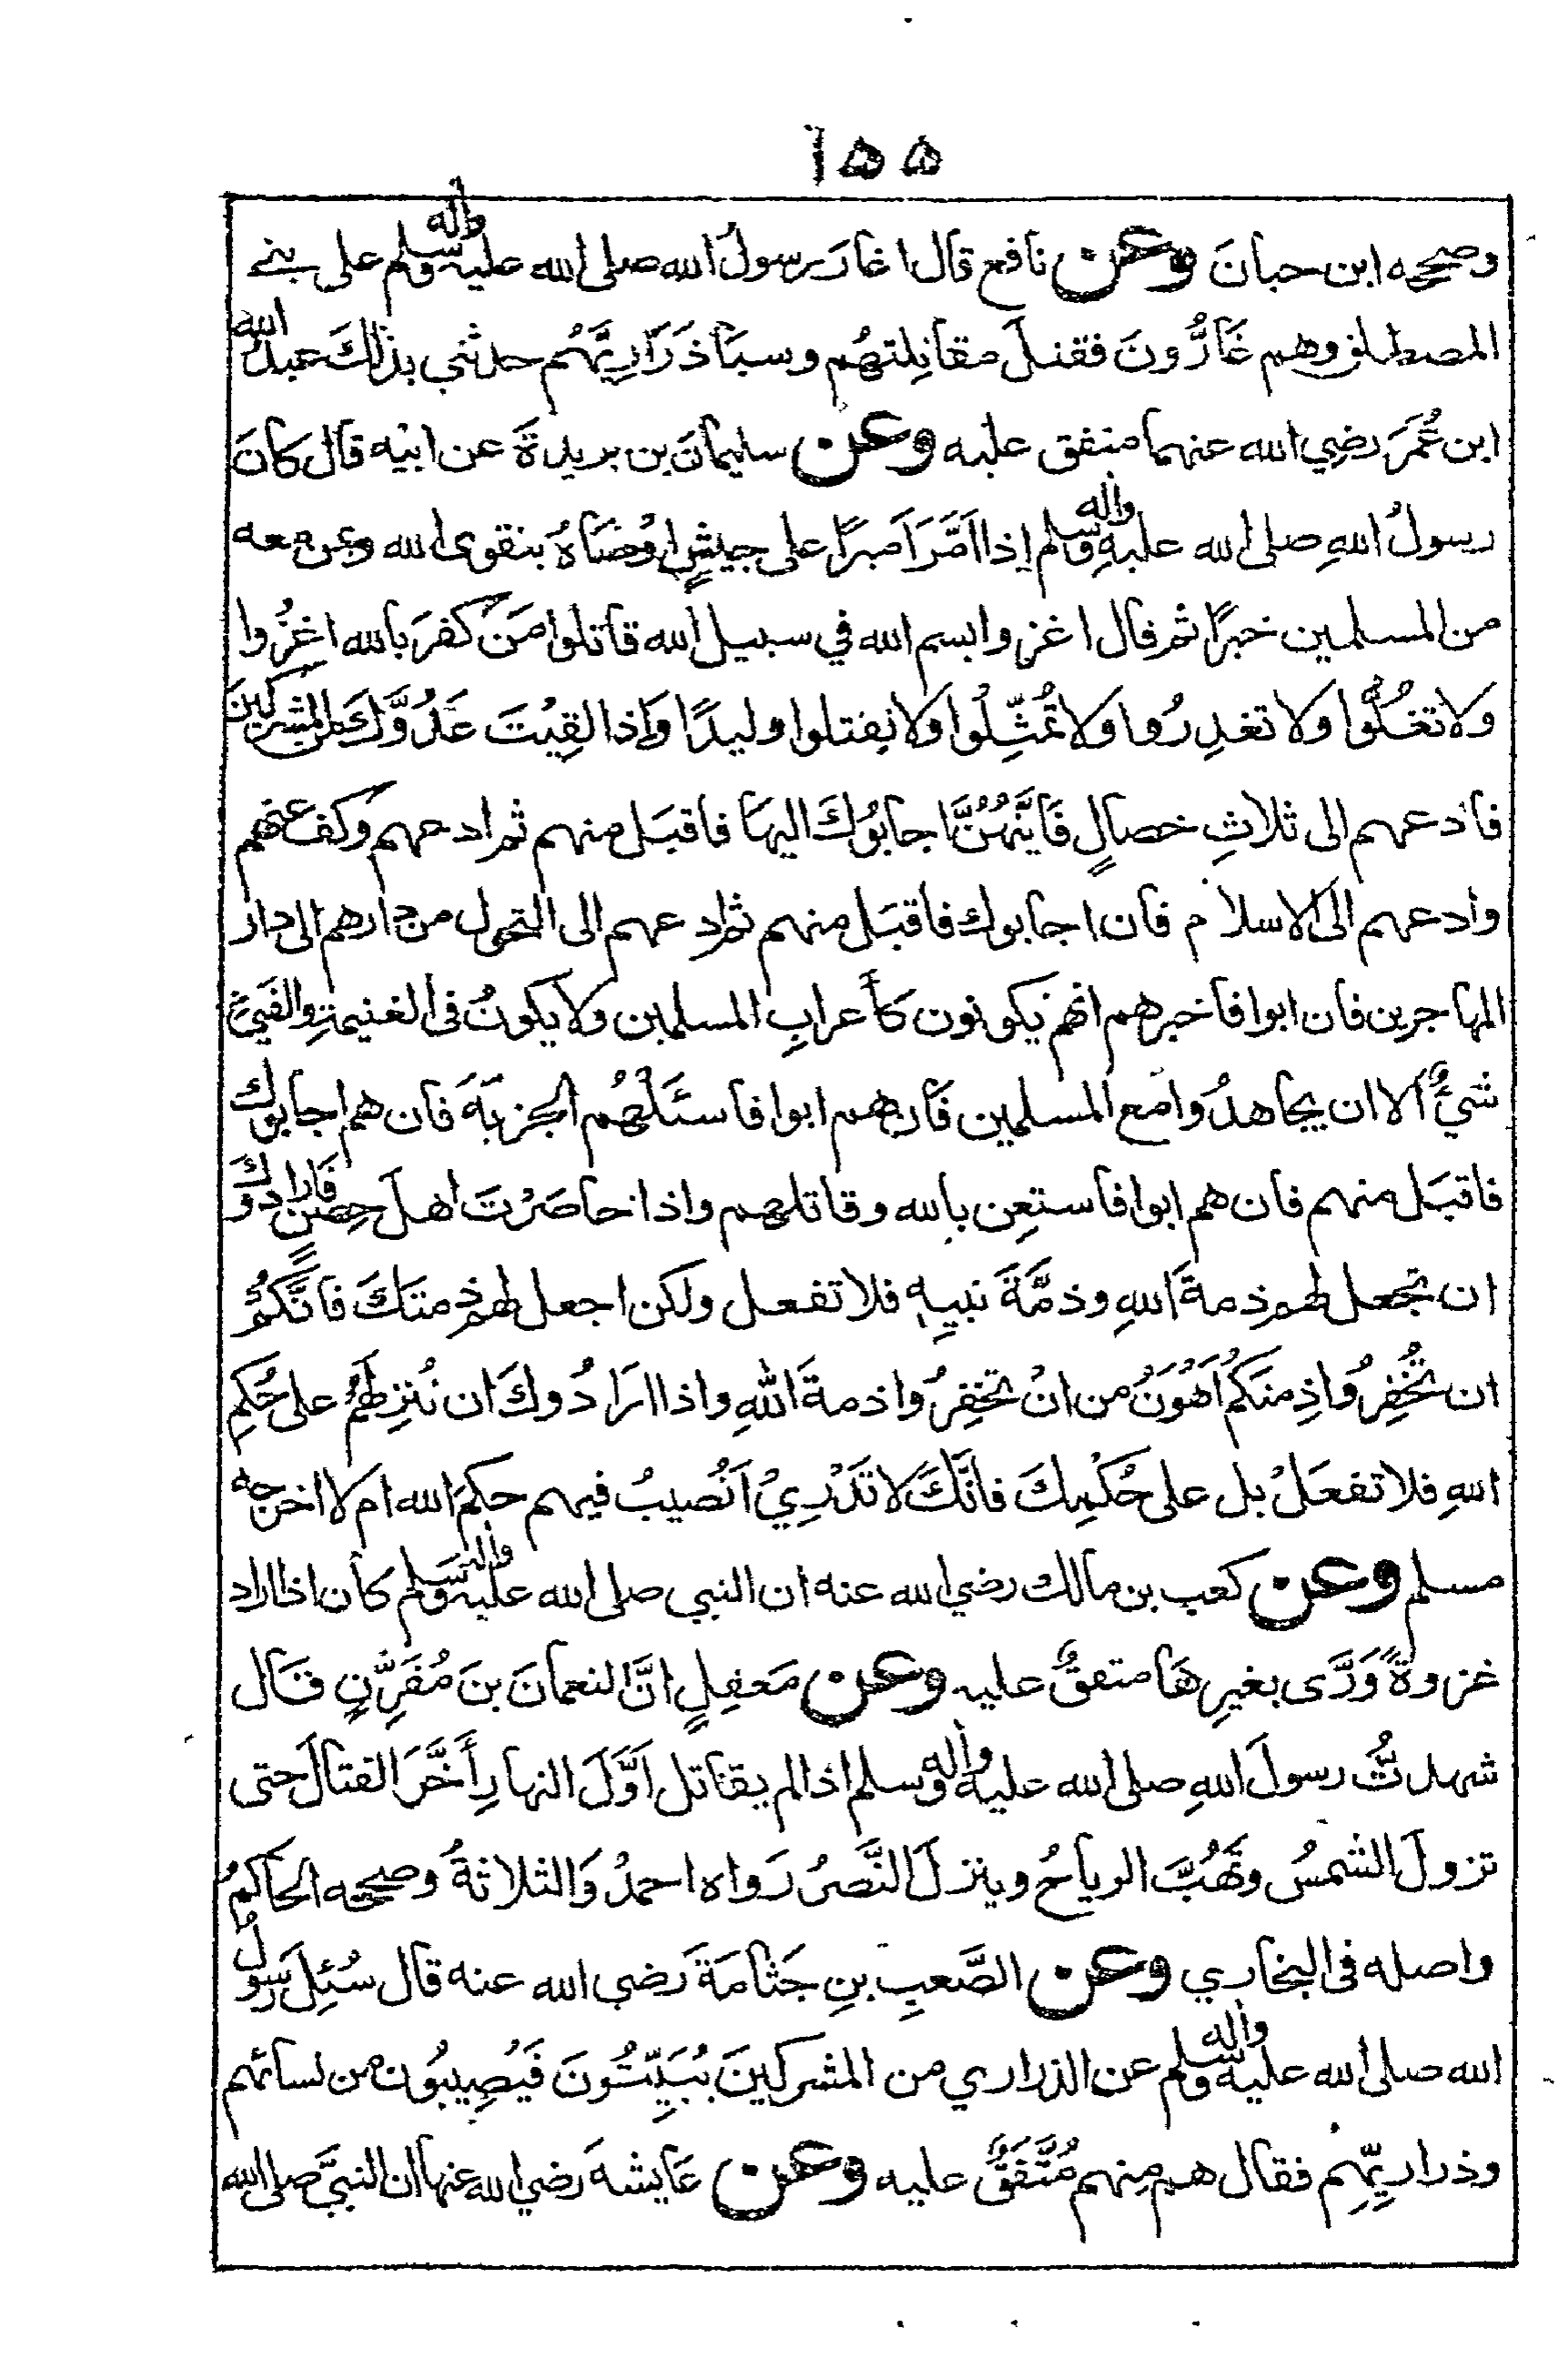 ١٥٥
وصححه ابن حبانَ وعن نافع قال اغارَ رسولُ الله صلى الله عليه واٰله وسلم على بنے
المصطلق وهم غَارُّونَ فقتلَ مقاتِلتهُم وسبَا ذَرَارِيَّهُم حدثني بذٰلكَ عبدُ الله
ابن عُمَرَ رضِي الله عنهما متفق عليه وعن سليمانَ بن بريدةَ عن ابيْه قال كانَ
رسولُ اللهِ صلى الله عليهِ واٰله وسلم إذا اَمَّرَ اَميرًا على جيشٍ اَوْصَاهُ بتقوى الله وبمن معه
من المسلمين خيرًا ثم قال اغزوا بسم الله في سبيل الله قاتلوا مَن كفرَ بالله اغزُوا
ولا تغُلُّوا ولا تغدِرُوا ولا تُمثِّلُوا ولا تقتلوا وليدًا وَإذا لقِيْتَ عَدُوَّكَ من المشركينَ
فادعهم الى ثلاثِ خصالٍ فَاَيَّتُهُنَّ اجابُوكَ اليهَا فاقبَل منهم ثم ادعهم وكفَّ عنهم
وادعهم الى الاسلام فان اجابوك فاقبَل منهم ثم ادعهم الى التحول من دارهم الى دار
المهاجرين فان ابوا فاخبرهم انهم يكونون كأعرابِ المسلمين ولا يكونُ فى الغنيمةِ والفَيْءِ
شيءٌ الا ان يجاهدُوا مع المسلمين فان هم ابوا فاسئَلْهُم الجزيةَ فان هم اجابوك
فاقبَل منهم فان هم ابوا فاستعِن بالله وقاتلهم واذا حاصَرْتَ اهلَ حِصْنٍ فَارادوكَ
ان تجعل لهم ذمةَ اللهِ وذمَّةَ نبيِهِ فلا تفعل ولكن اجعل لهم ذمتَكَ فانَّكمُ
ان تُخْفِرُوا ذِمتَكُم اَهْوَنُ من انْ تُخْفِرُوا ذمةَ اللهِ واذا ارَادُوكَ ان تُنزِلَهُم على حُكمِ
اللهِ فلا تفعَلْ بل على حُكْمِكَ فانَّكَ لا تَدْرِيْ اَتُصيبُ فيهم حكمَ الله ام لا اخرجه
مسلم وعن كعب بن مالك رضي الله عنه ان النبي صلى الله عليه واٰله وسلم كان اذا اراد
غزوةً وَرَّى بغيرِهَا متفقٌ عليه وعن مَعقِلٍ انَّ النعمانَ بنَ مُقَرِّنٍ قَال
شهدتُّ رسولَ اللهِ صلى الله عليه واٰله وسلم اذا لم يقاتل اَوَّلَ النهارِ أَخَّرَ القتالَ حتى
تزولَ الشمسُ وتَهُبَّ الرياحُ وينزلَ النَّصرُ رَواه احمدُ وَالثلاثةُ وصححه الحاكمُ
واصله فى البخاري وعن الصَّعبِ بنِ جَثامَةَ رَضي الله عنه قال سُئِلَ رَسولُ
الله صلى الله عليه واٰله وسلم عن الذراري من المشركينَ يُبَيَّتُونَ فَيُصِيبُون من نسائهم
وذراريِّهِم فقال هم منهم مُتَّفَقٌ عليه وعن عَايشةَ رَضي الله عنها ان النبيَّ صلى الله